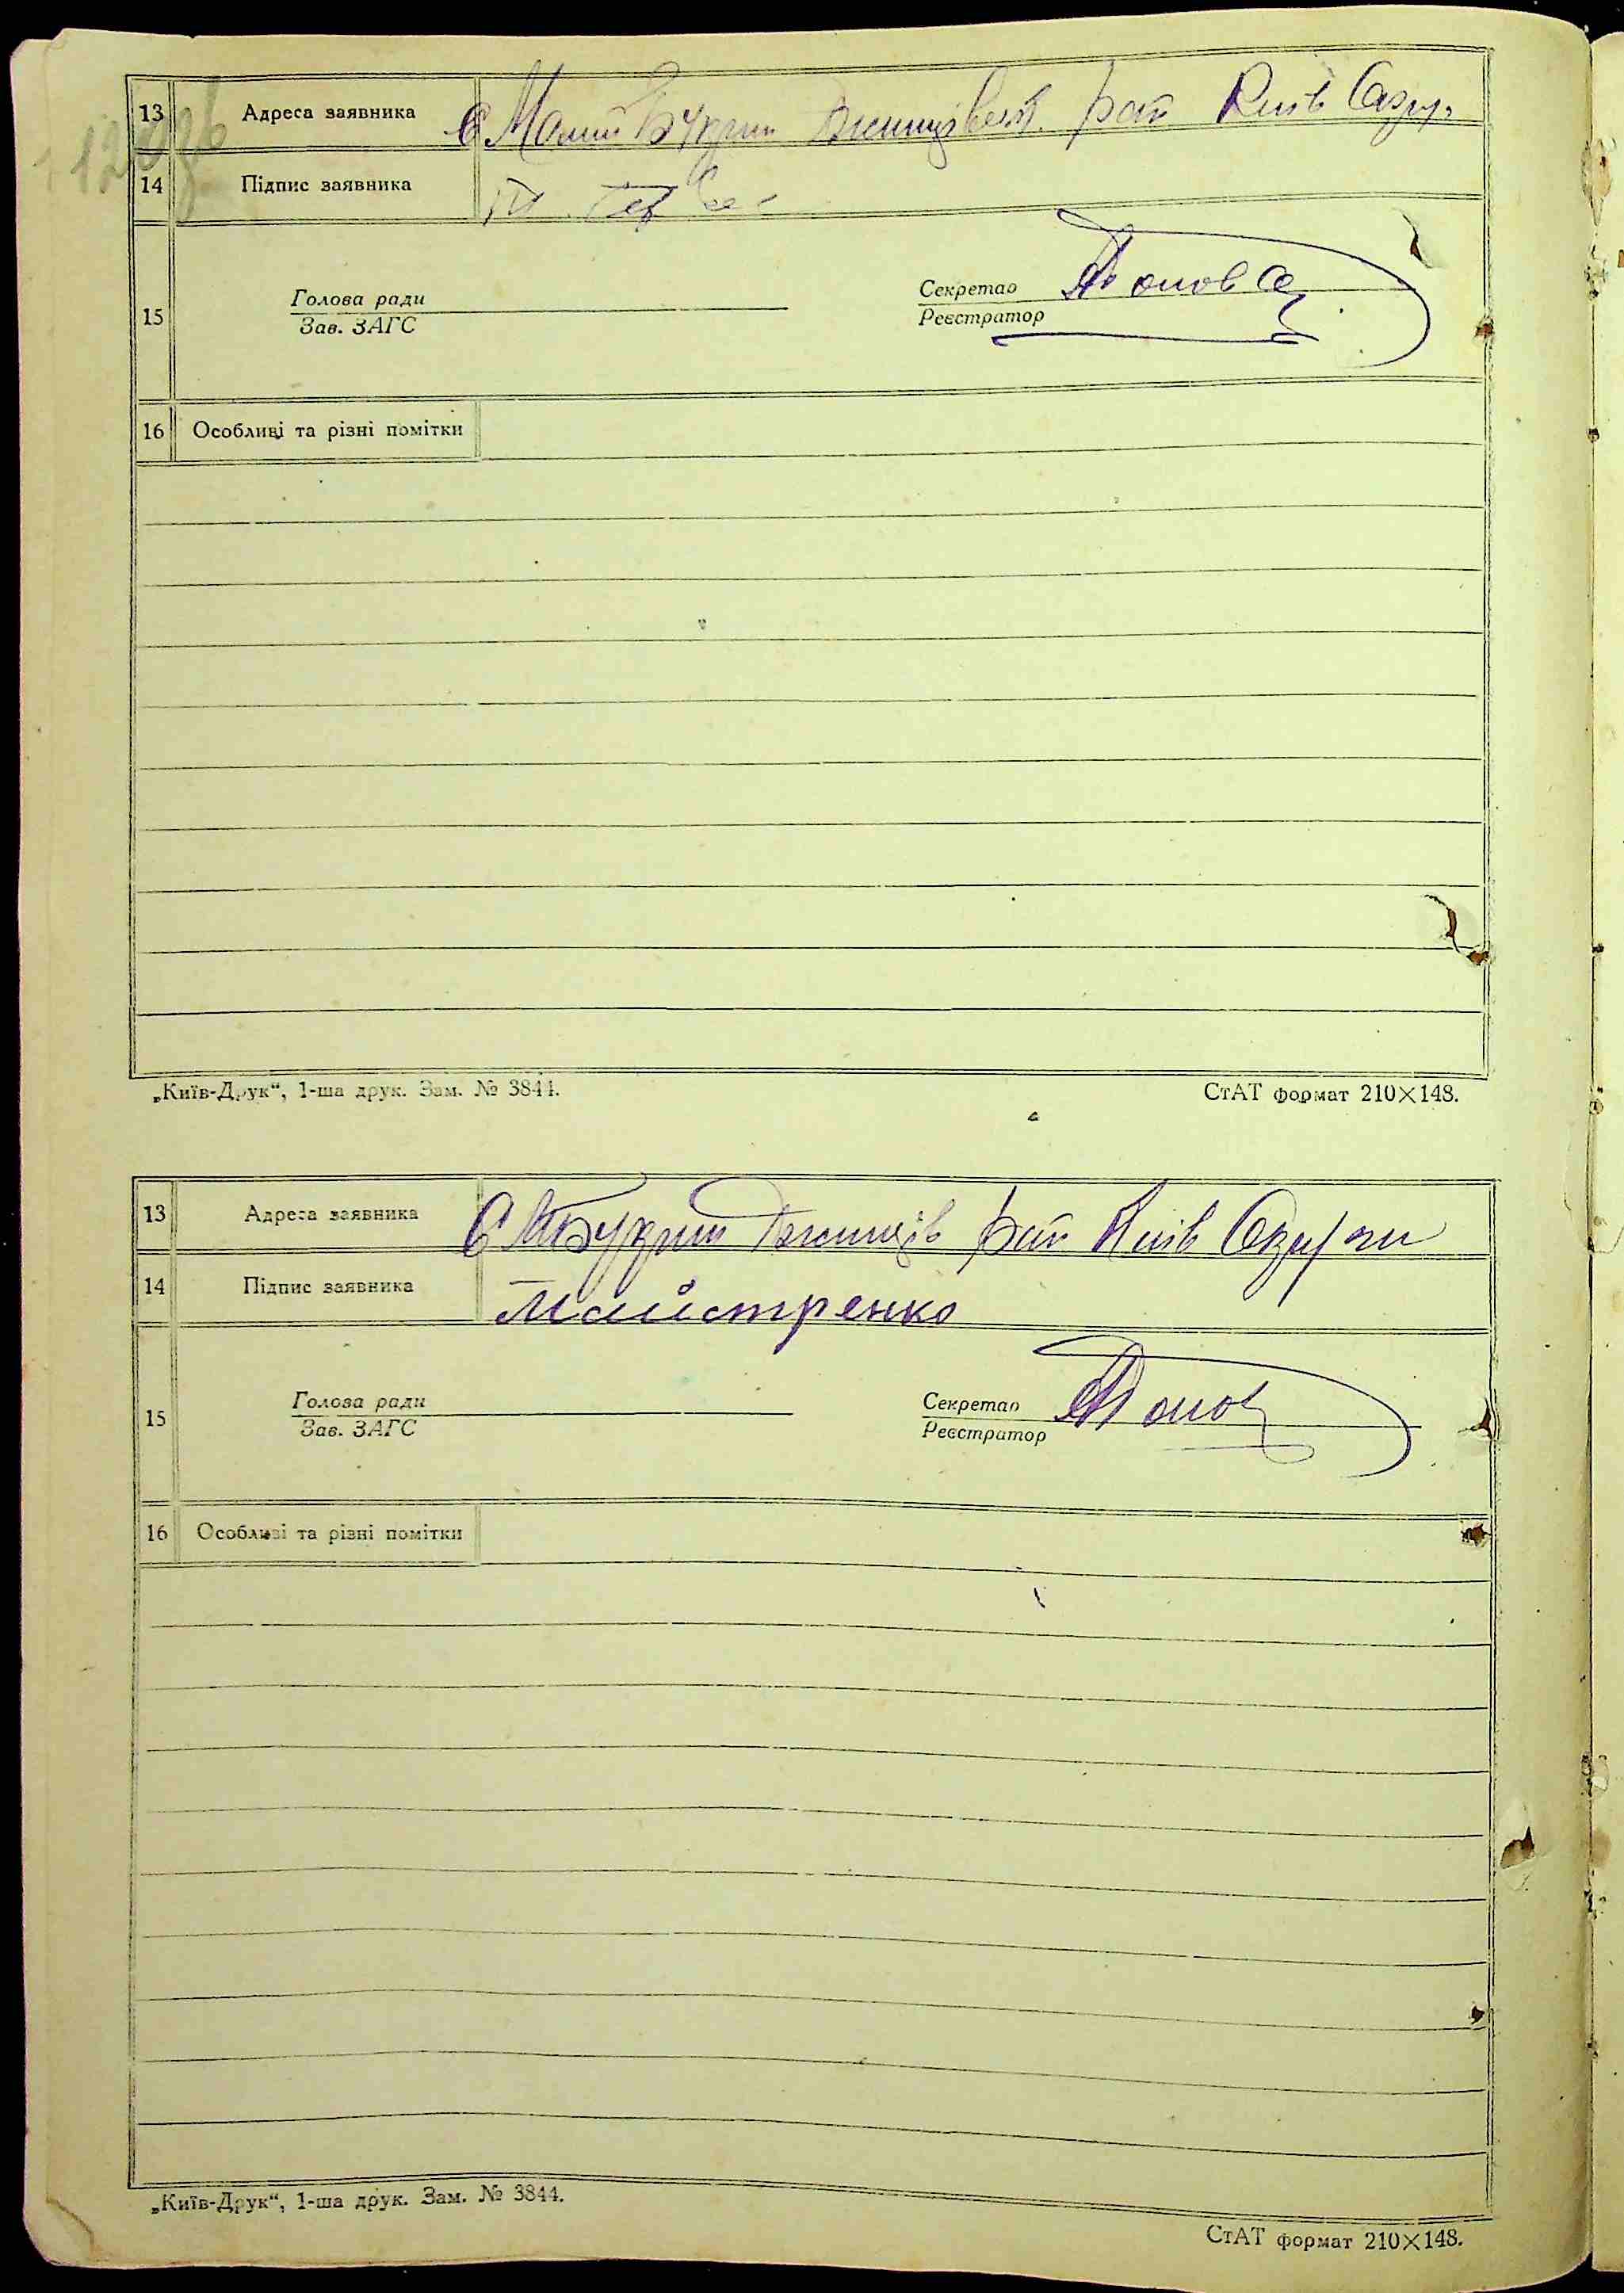 13 Адреса заявника с Малий Букрин Ржищівськ. рай Київ Округ.
14 Підпис заявника
15 Голова ради Секретар
Зав. ЗАГС Реєстратор
16 Особливі та різні помітки
„Київ-Друк“, 1-ша друк. Зам. № 3844. СтАТ формат 210×148.
13 Адреса заявника С М Букрин Ржищів рай Київ Округи
14 Підпис заявника Майстренко
15 Голова ради Секретар
Зав. ЗАГС Реєстратор
16 Особливі та різні помітки
„Київ-Друк“, 1-ша друк. Зам. № 3844.
СтАТ формат 210×148.